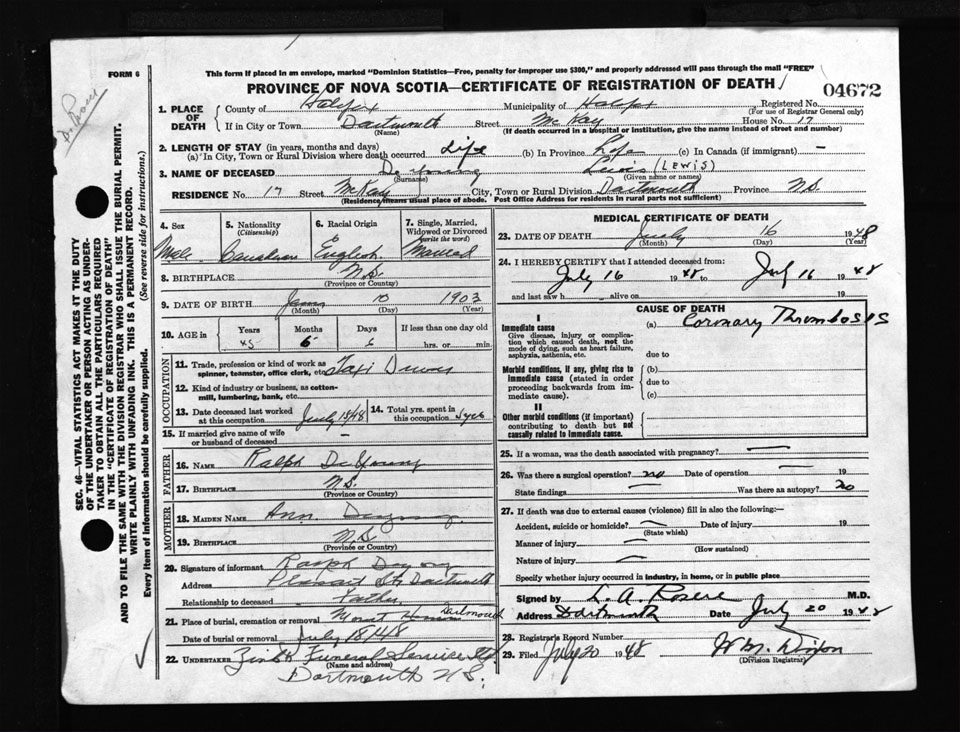 FORM 6
This form if placed in an envelope, marked "Dominion Statistics—Free, penalty for improper use $300," and properly addressed will pass through the mail "FREE"
PROVINCE OF NOVA SCOTIA—CERTIFICATE OF REGISTRATION OF DEATH
04672
1. PLACE OF DEATH
County of Halifax Municipality of Halifax Registered No.
(For use of Registrar General only)
If in City or Town Dartmouth Street McKay House No. 17
(Name) (If death occurred in a hospital or institution, give the name instead of street and number)
2. LENGTH OF STAY (in years, months and days)
(a) In City, Town or Rural Division where death occurred Life (b) In Province Life (c) In Canada (if immigrant) —
3. NAME OF DECEASED De Young Lewis (LEWIS)
(Surname) (Given name or names)
RESIDENCE No. 17 Street McKay City, Town or Rural Division Dartmouth Province N.S.
(Residence means usual place of abode. Post Office Address for residents in rural parts not sufficient)
4. Sex Male
5. Nationality (Citizenship) Canadian
6. Racial Origin English
7. Single, Married, Widowed or Divorced (write the word) Married
8. BIRTHPLACE N.S.
(Province or Country)
9. DATE OF BIRTH 10 1903
(Month) (Day) (Year)
10. AGE in Years Months Days If less than one day old
45 6 6 hrs. or min.
OCCUPATION
11. Trade, profession or kind of work as spinner, teamster, office clerk, etc. Taxi Driver
12. Kind of industry or business, as cotton-mill, lumbering, bank, etc.
13. Date deceased last worked at this occupation July 15/48
14. Total yrs. spent in this occupation
15. If married give name of wife or husband of deceased —
FATHER
16. NAME Ralph DeYoung
17. BIRTHPLACE N.S.
(Province or Country)
MOTHER
18. MAIDEN NAME Ann
19. BIRTHPLACE N.S.
(Province or Country)
20. Signature of informant Ralph
Address Pleasant St. Dartmouth
Relationship to deceased Father
21. Place of burial, cremation or removal Mount Dartmouth
Date of burial or removal July 18/48
22. UNDERTAKER Zink Funeral Service
(Name and address)
Dartmouth N.S.
MEDICAL CERTIFICATE OF DEATH
23. DATE OF DEATH July 16 1948
(Month) (Day) (Year)
24. I HEREBY CERTIFY that I attended deceased from:
July 16 1948 to July 16 1948
and last saw h alive on 19
CAUSE OF DEATH
I
Immediate cause (a) Coronary Thrombosis
Give disease, injury or complication which caused death, not the mode of dying, such as heart failure, asphyxia, asthenia, etc.
due to
Morbid conditions, if any, giving rise to immediate cause (stated in order proceeding backwards from immediate cause).
(b)
due to
(c)
II
Other morbid conditions (if important) contributing to death but not causally related to immediate cause.
25. If a woman, was the death associated with pregnancy? —
26. Was there a surgical operation? no Date of operation — 19
State findings Was there an autopsy? no
27. If death was due to external causes (violence) fill in also the following:—
Accident, suicide or homicide? — Date of injury 19
(State which)
Manner of injury —
(How sustained)
Nature of injury —
Specify whether injury occurred in industry, in home, or in public place
Signed by L. A. Rosere M.D.
Address Dartmouth Date July 20 1948
28. Registrar's Record Number
29. Filed July 20 1948 Wm. Dixon
(Division Registrar)
SEC. 46—VITAL STATISTICS ACT MAKES IT THE DUTY
OF THE UNDERTAKER OR PERSON ACTING AS UNDER-
TAKER TO OBTAIN ALL THE PARTICULARS REQUIRED
IN THE "CERTIFICATE OF REGISTRATION OF DEATH"
AND TO FILE THE SAME WITH THE DIVISION REGISTRAR WHO SHALL ISSUE THE BURIAL PERMIT.
WRITE PLAINLY WITH UNFADING INK. THIS IS A PERMANENT RECORD.
Every item of information should be carefully supplied. (See reverse side for instructions.)